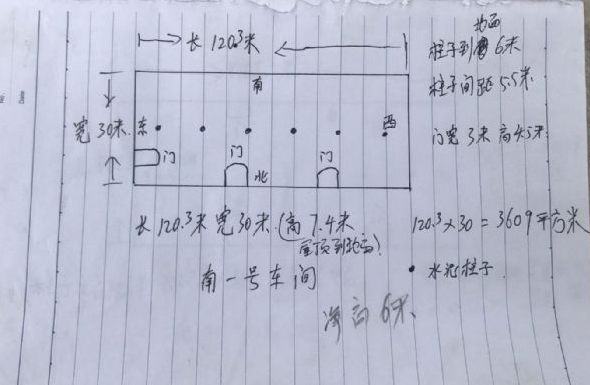 长 120.3米
柱子到地面 6米
柱子间距 5.5米
南
宽 30米
东
西
门宽 3米 高4.5米
门
门
门
北
长 120.3米 宽 30米 (高 7.4米
屋顶到地面)
120.3×30=3609平方米
南一号车间
• 水泥柱子
净高 6米